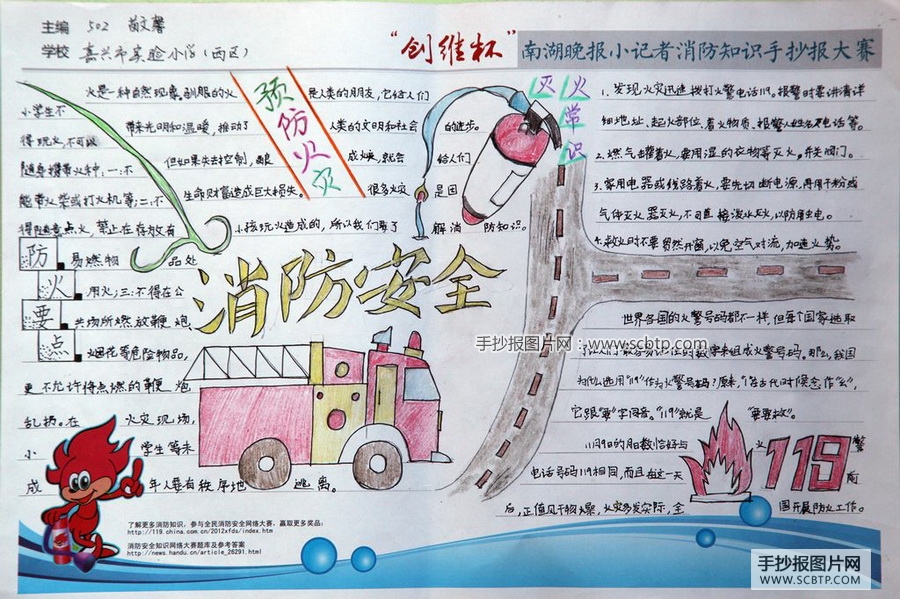 主编 502 苗文馨
学校 嘉兴市实验小学(西区)
"创维杯"南湖晚报小记者消防知识手抄报大赛
预防火灾
火是一种自然现象。驯服的火是人类的朋友,它给人们
带来光明和温暖,推动了人类的文明和社会的进步。
但如果失去控制,
成灾,就会给人们
生命财富造成巨大损失。很多火灾是因
小孩玩火造成的,所以我们要了解消防知识。
防火要点
小学生不
得玩火,不可以
随身携带火种:一:不
能带火柴或打火机等;二:不
得随意点火,禁止在存放有
易燃物品处
用火;三:不得在公
共场所燃放鞭炮、
烟花等危险物品,
更不允许将点燃的鞭炮
乱扔。在火灾现场,
小学生等未
成年人要有秩序地逃离。
消防安全
灭火常识
1.发现火灾迅速拨打火警电话119。报警时要讲清详
细地址、起火部位、着火物质、报警人姓名及电话等。
2.燃气罐着火,要用湿的衣物等灭火,并关阀门。
3.家用电器或线路着火,要先切断电源,再用干粉或
气体灭火器灭火,不可直接泼水灭火,以防触电。
4.救火时不要贸然开窗,以免空气对流,加速火势。
手抄报图片网:www.scbtp.com
世界各国的火警号码都不一样,但每个国家选取
来组成火警号码。那么,我国
为什么选用"119"作为火警号码?原来,"1"在古代时候念作"幺",
它跟"要"字同音。"119"就是"要要救"。
11月9日的月日数恰好与
电话号码119相同,而且在这一天
后,正值风干物燥,火灾多发实际,全
国开展防火工作。
火119警
了解更多消防知识,参与全民消防安全网络大赛,赢取更多奖品:
http://119.china.com.cn/2012xfds/index.htm
消防安全知识网络大赛题库及参考答案
http://news.handu.cn/article_26291.html
手抄报图片网
WWW.SCBTP.COM